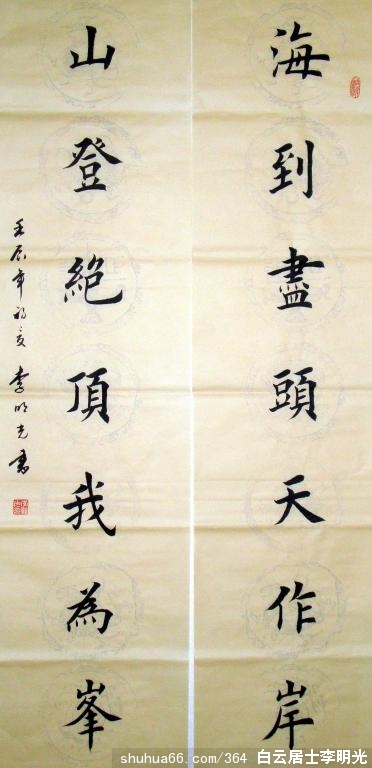 海到盡頭天作岸
山登絕頂我為峯
壬辰年初夏 李明光書
shuhua66.com/364 白云居士李明光